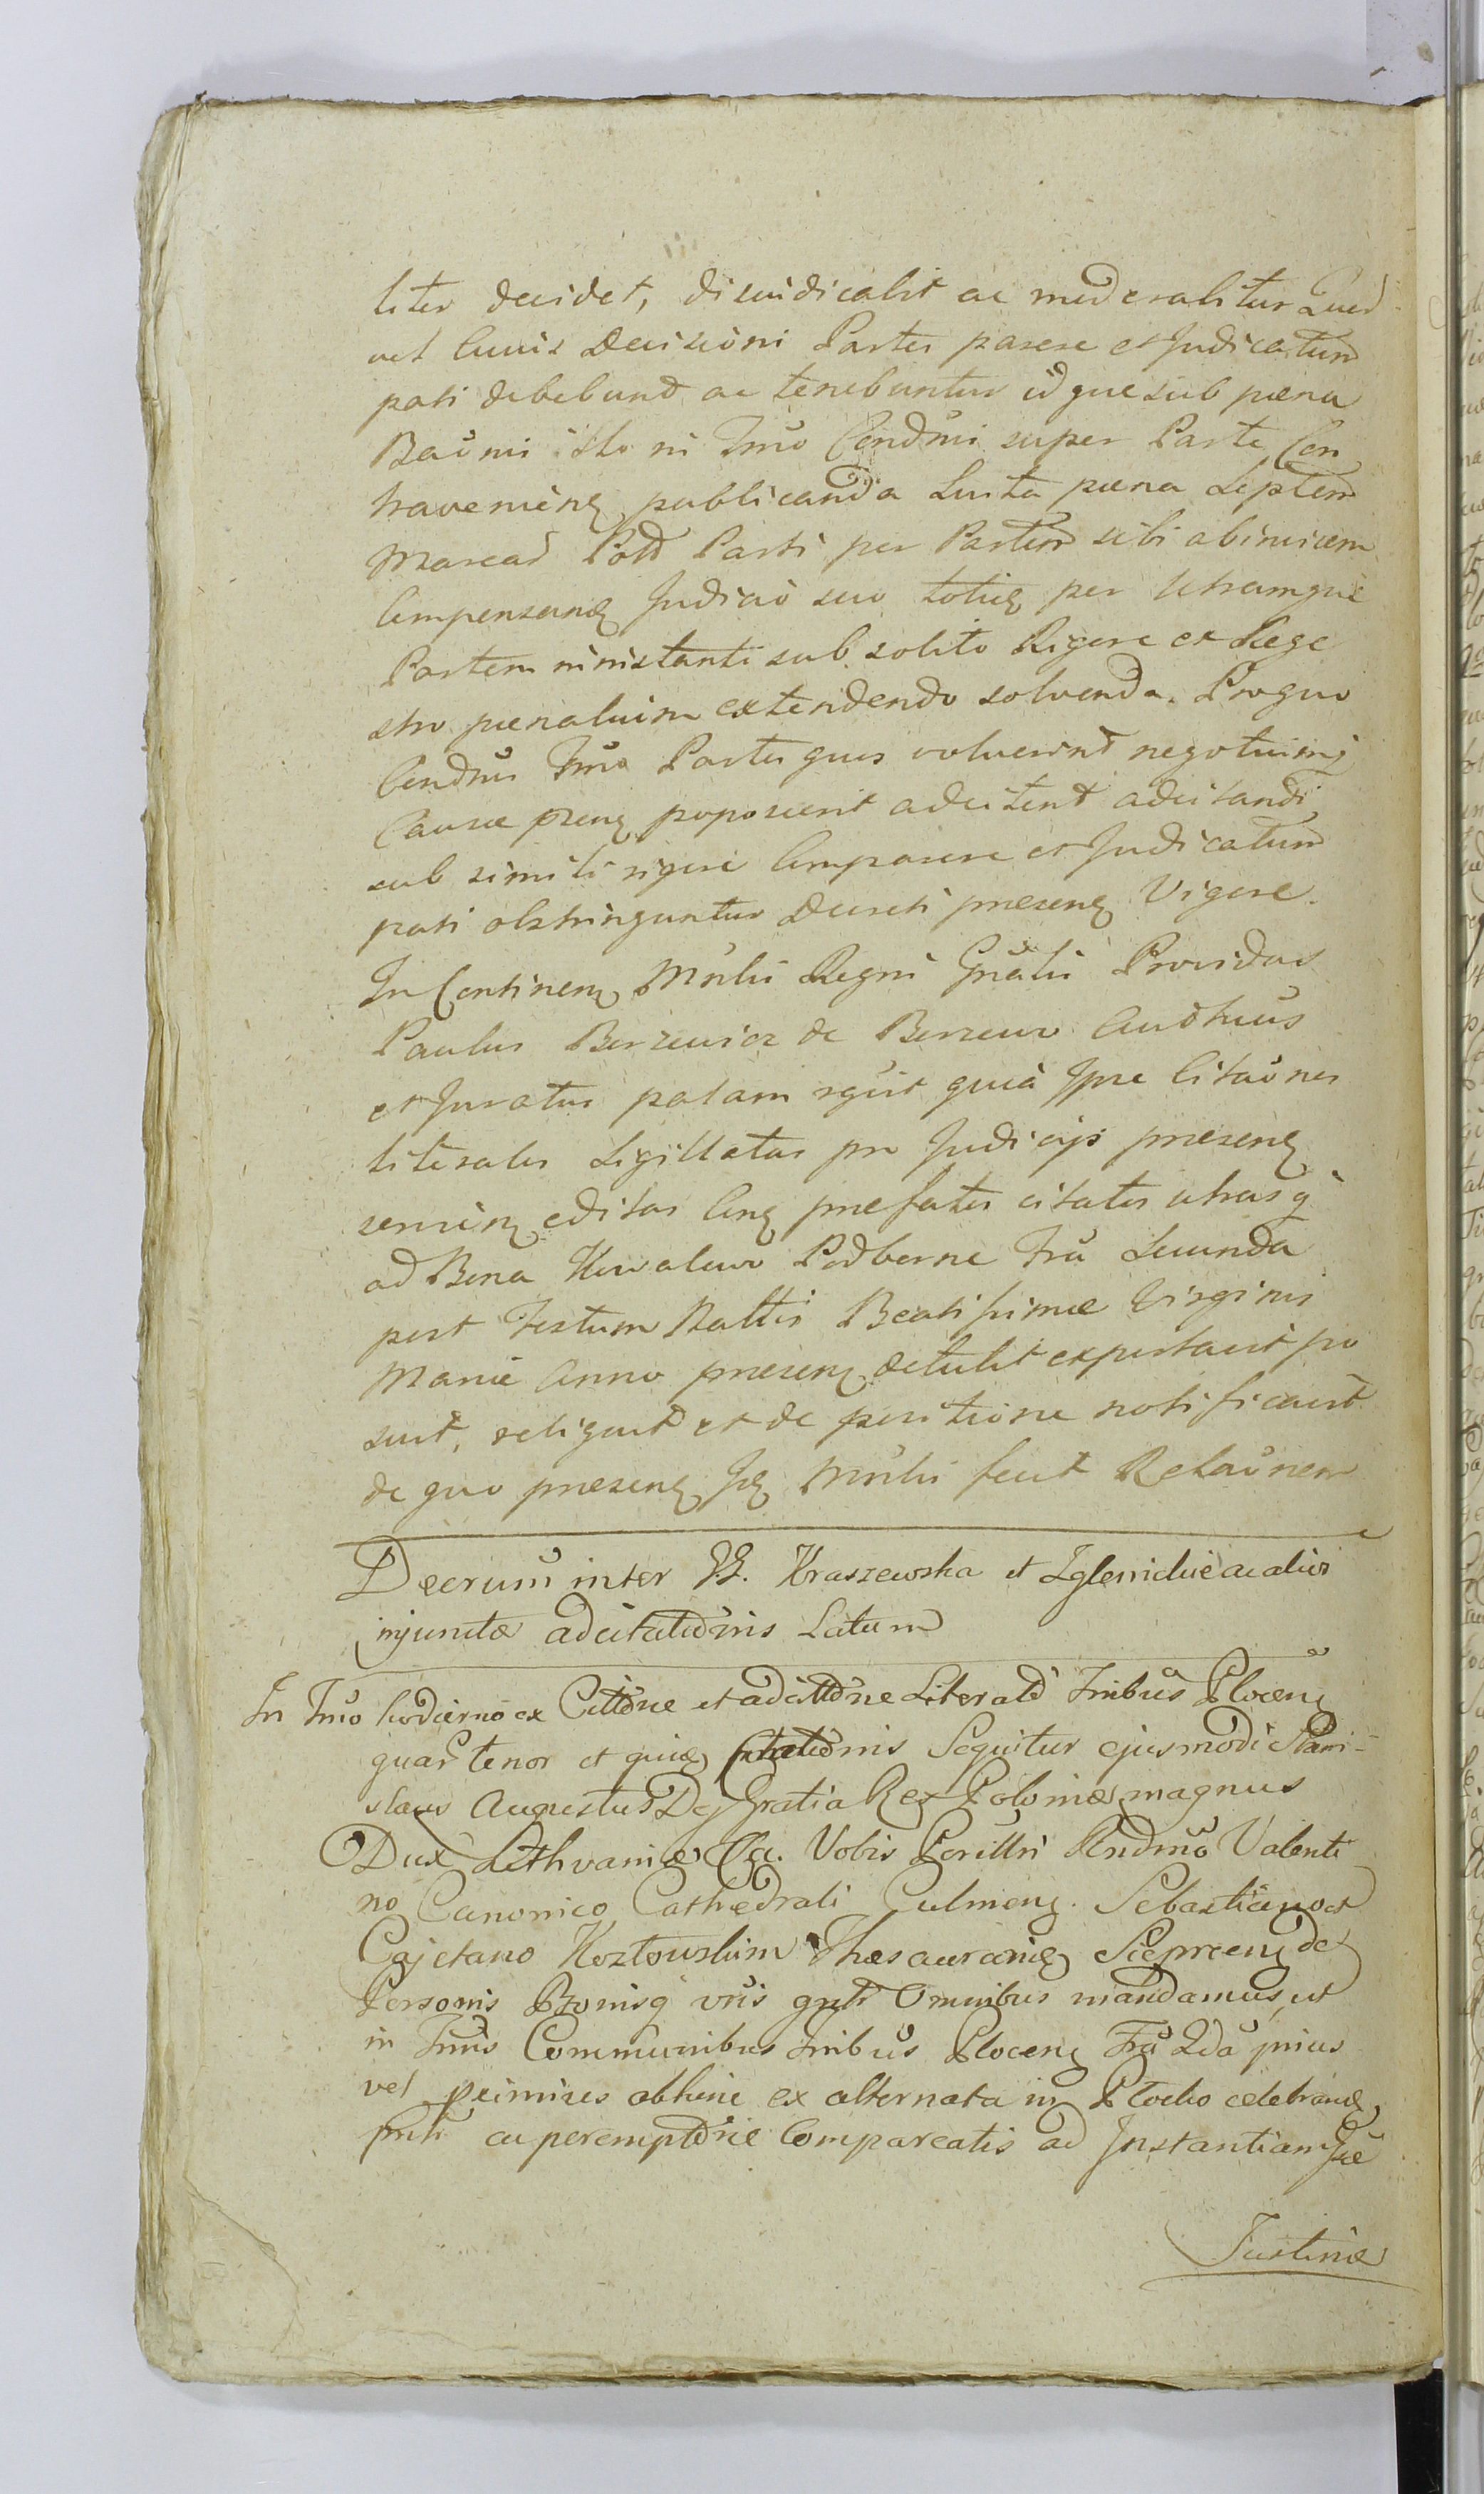 liter decidet, dijudicabit ac moderabitur Quod
vel cuius Decisioni Partes parere et Judicatum
pati debebund ac tenebuntur id que sub pæna
Banni isto ni Tmo Condmi super Parte Con
travenien publicanda Luita pæna Septem
Marcar Poll Parti per Partem sibi abinvicem
Compensan Judicio suo toties per Utramque
Partem ninistanti sub solito Rigore et Rege
stro pænalium extendendo solvenda. Pro quo
Condmi Tmo Partes quos voluerint negotiumq
Causæ præn poposcerit adcitent adcitandi
sub simili rigore Comparere et Judicatum
pati obstringuntur Decreti præsen Vigore.
In Continen Mnlis Regni Gnalis Providus
Paulus Berzewicz de Berzewo Authus
et Juratus palam rgut quia Ipse Citaones
literales Sigillatas pro Judicijs præsen
servien editas Cing præfatis citatis utrasq
ad Bona Kowalewo Podborne Fra Secunda
post Festum Nattis Beatissimæ Virginis
Mariæ Anno præsen detulit exportavit po
suit, reliquit et de positione notificavit
de quo præsen Jtg Mnlis fecit Relaonem
Decrum inter G.G. Kraszewska et Zglenickie ac alios
injunctæ adcitationis Latum
In Tmo hodierno ex Cittone et adcittone Literali Tmibus Plocen
quar tenor et quidem Citationis Sequitur ejusmodi Stani-
slaus Augustus Dej Gratia Rex Poloniæ, magnus
Dux Lithvaniæ &ca. Vobis Perillri Rndmo Valenti
no Canonico Cathedrali Culmen. Sebastiano et
Cajetano Kozłowskim Thesaurariæ Siepreen de
Personis Bonisq vris gnlr Omnibus mandamus, ut
in Tmis Communibus Tmibus Plocen Fra 2da prius
vel primius abhinc ex alternata in Płocko celebrand,
pntr ac peremptorie Compareatis ad Instantiam Gæ
Justinæ